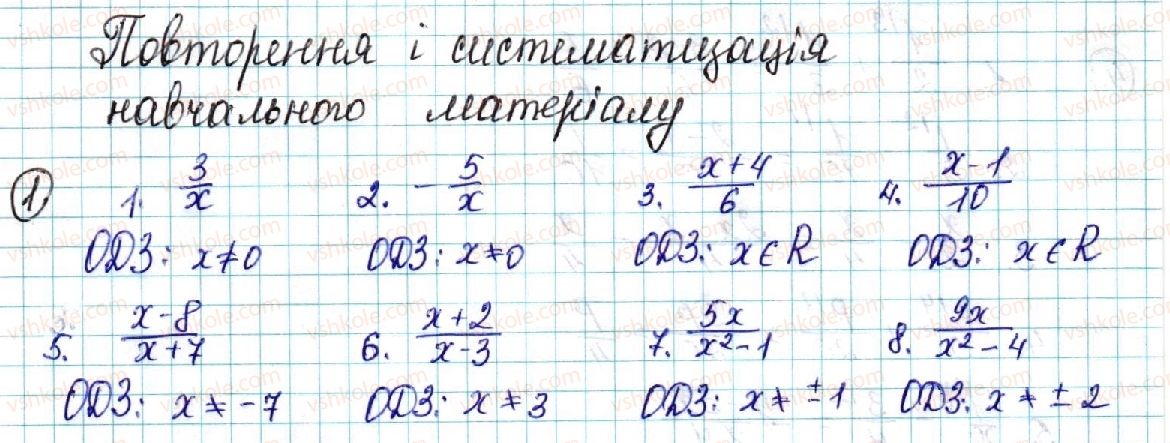 Повторення і систематизація
навчального матеріалу
① 1. 3/x 2. -5/x 3. (x+4)/6 4. (x-1)/10
ОДЗ: x≠0 ОДЗ: x≠0 ОДЗ: x∈R ОДЗ: x∈R
5. (x-8)/(x+7) 6. (x+2)/(x-3) 7. 5x/(x²-1) 8. 9x/(x²-4)
ОДЗ: x≠-7 ОДЗ: x≠3 ОДЗ: x≠±1 ОДЗ: x≠±2